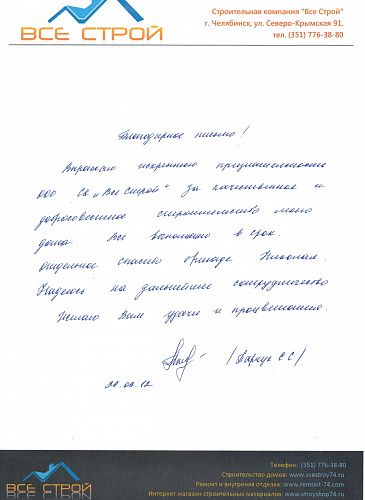 ВСЕ СТРОЙ
Строительная компания "Все Строй"
г. Челябинск, ул. Северо-Крымская 91.
тел. (351) 776-38-80
Благодарное письмо!
Выражаю искреннюю признательность
ООО СК „Все Строй" за качественное и
добросовестное строительство моего
дома. Все выполнено в срок.
Отдельное спасибо бригаде Николая.
Надеюсь на дальнейшее сотрудничество
Желаю Вам удачи и процветания.
/ С С/
20.06.12
ВСЕ СТРОЙ
Телефон: (351) 776-38-80
Строительство домов: www.vsestroy74.ru
Ремонт и внутреняя отделка: www.remont-74.com
Интернет магазин строительных материалов: www.stroyshop74.ru